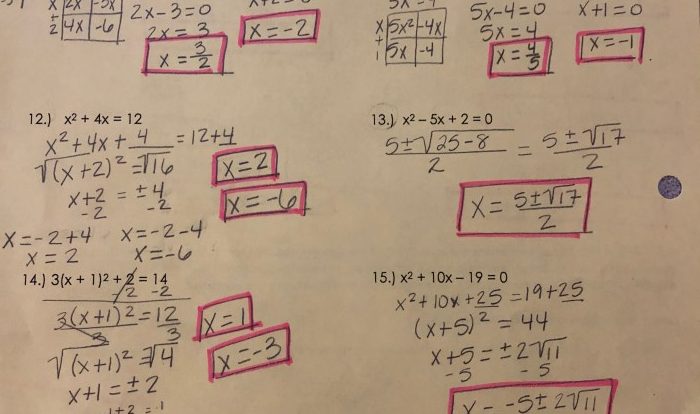 x 2x -3x
+
2 4x -6
2x-3=0
2x=3
x=3/2
x=-2
x 5x² -4x
+
1 5x -4
5x-4=0
5x=4
x=4/5
x+1=0
x=-1
12.) x² + 4x = 12
x²+4x+4=12+4
√(x+2)²=√16
x+2 = ±4
-2 -2
x=-2+4 x=-2-4
x=2 x=-6
x=2
x=-6
13.) x² – 5x + 2 = 0
5±√25-8/2 = 5±√17/2
x= 5±√17/2
14.) 3(x + 1)² + 2 = 14
-2 -2
3(x+1)²=12
3 3
√(x+1)²=√4
x+1=±2
x=1
x=-3
15.) x² + 10x – 19 = 0
x²+10x+25=19+25
(x+5)²=44
x+5=±2√11
-5 -5
x=-5±2√11